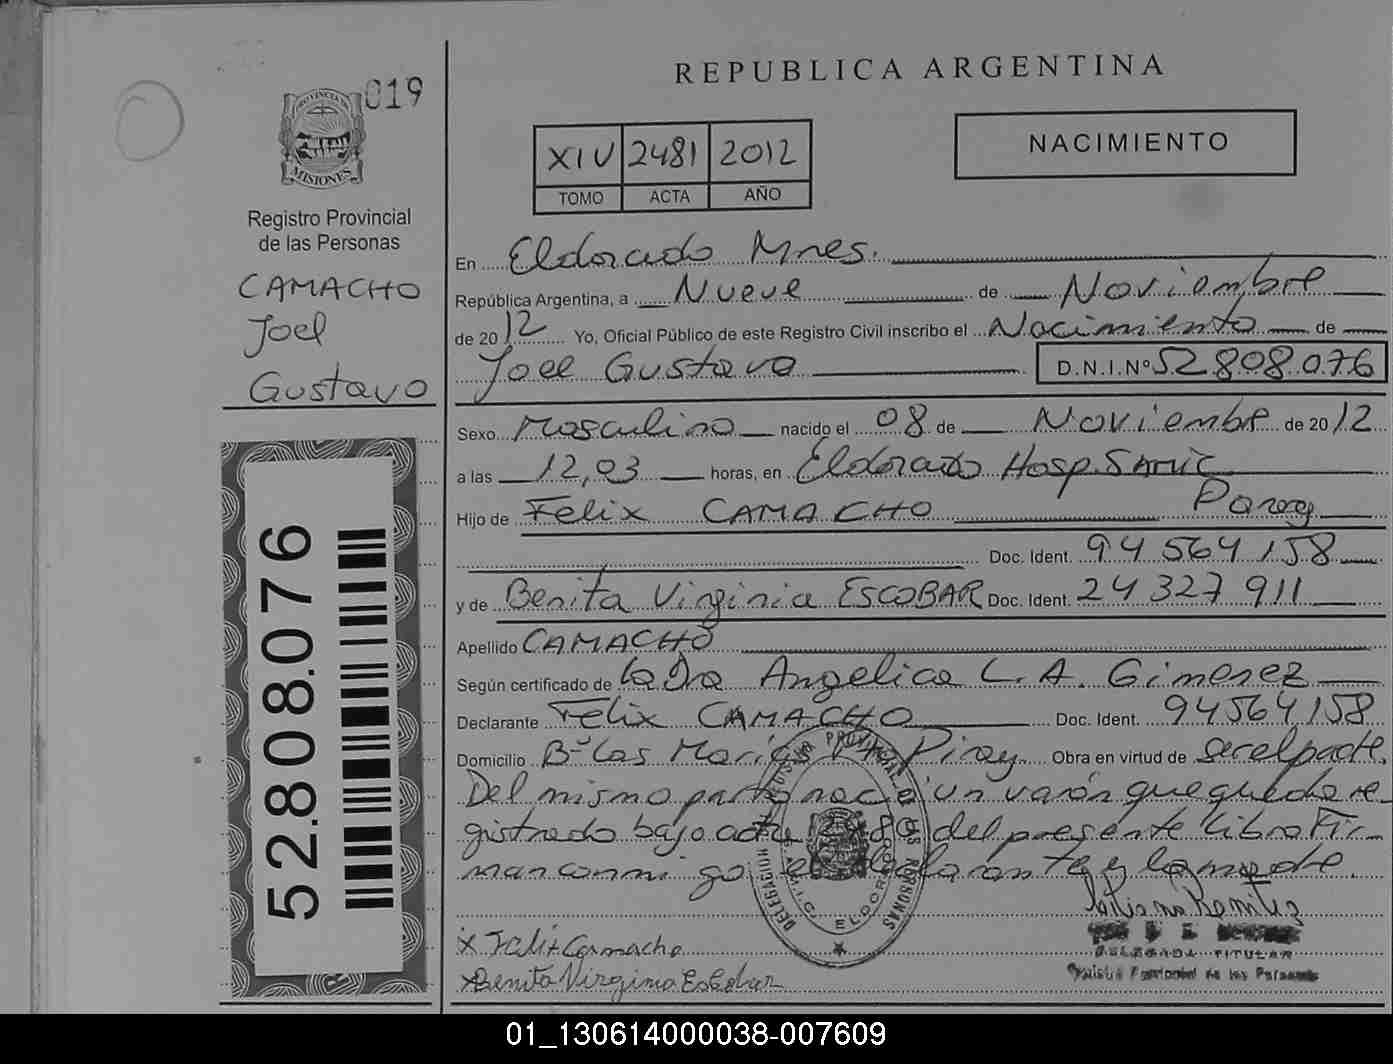 019
REPUBLICA ARGENTINA
NACIMIENTO
XIV 2481 2012
TOMO ACTA AÑO
PROVINCIA DE
MISIONES
Registro Provincial
de las Personas
CAMACHO
Joel
Gustavo
52.808.076
En Eldorado Mnes.
República Argentina, a Nueve de Noviembre
de 2012 Yo, Oficial Público de este Registro Civil inscribo el Nacimiento de
Joel Gustavo D.N.I.Nº 52 808.076
Sexo Masculino nacido el 08 de Noviembre de 2012
a las 12,03 horas, en Eldorado Hosp. Samic
Hijo de Felix CAMACHO
Doc. Ident. 94 564 158
y de Benita Virginia ESCOBAR Doc. Ident. 24 327 911
Apellido CAMACHO
Según certificado de la Dra Angelica L. A. Gimenez
Declarante Felix CAMACHO Doc. Ident. 94564158
Domicilio Bº Las Marias Piray Obra en virtud de ser el padre.
Del mismo parto nació un varón que queda re-
gistrado bajo acta 2480 del presente libro Fir-
man conmigo el declarante y la madre.
DELEGACION PROVINCIAL DE LAS PERSONAS
S.A.M.I.C. ELDORADO
X Felix Camacho
X Benita Virginia Escobar
DELEGADA TITULAR
01_130614000038-007609